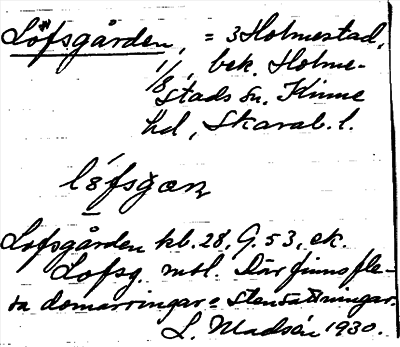 Löfsgården, = 3 Holmestad,
1/8, bek. Holme-
stads sn. Kinne
hd, Skarab. l.
Lofsgården kb. 28, G. 53, ek.
Lofsg. mbl. Där finns fle-
ra domarringar = stensättningar.
L. Madsén 1930.